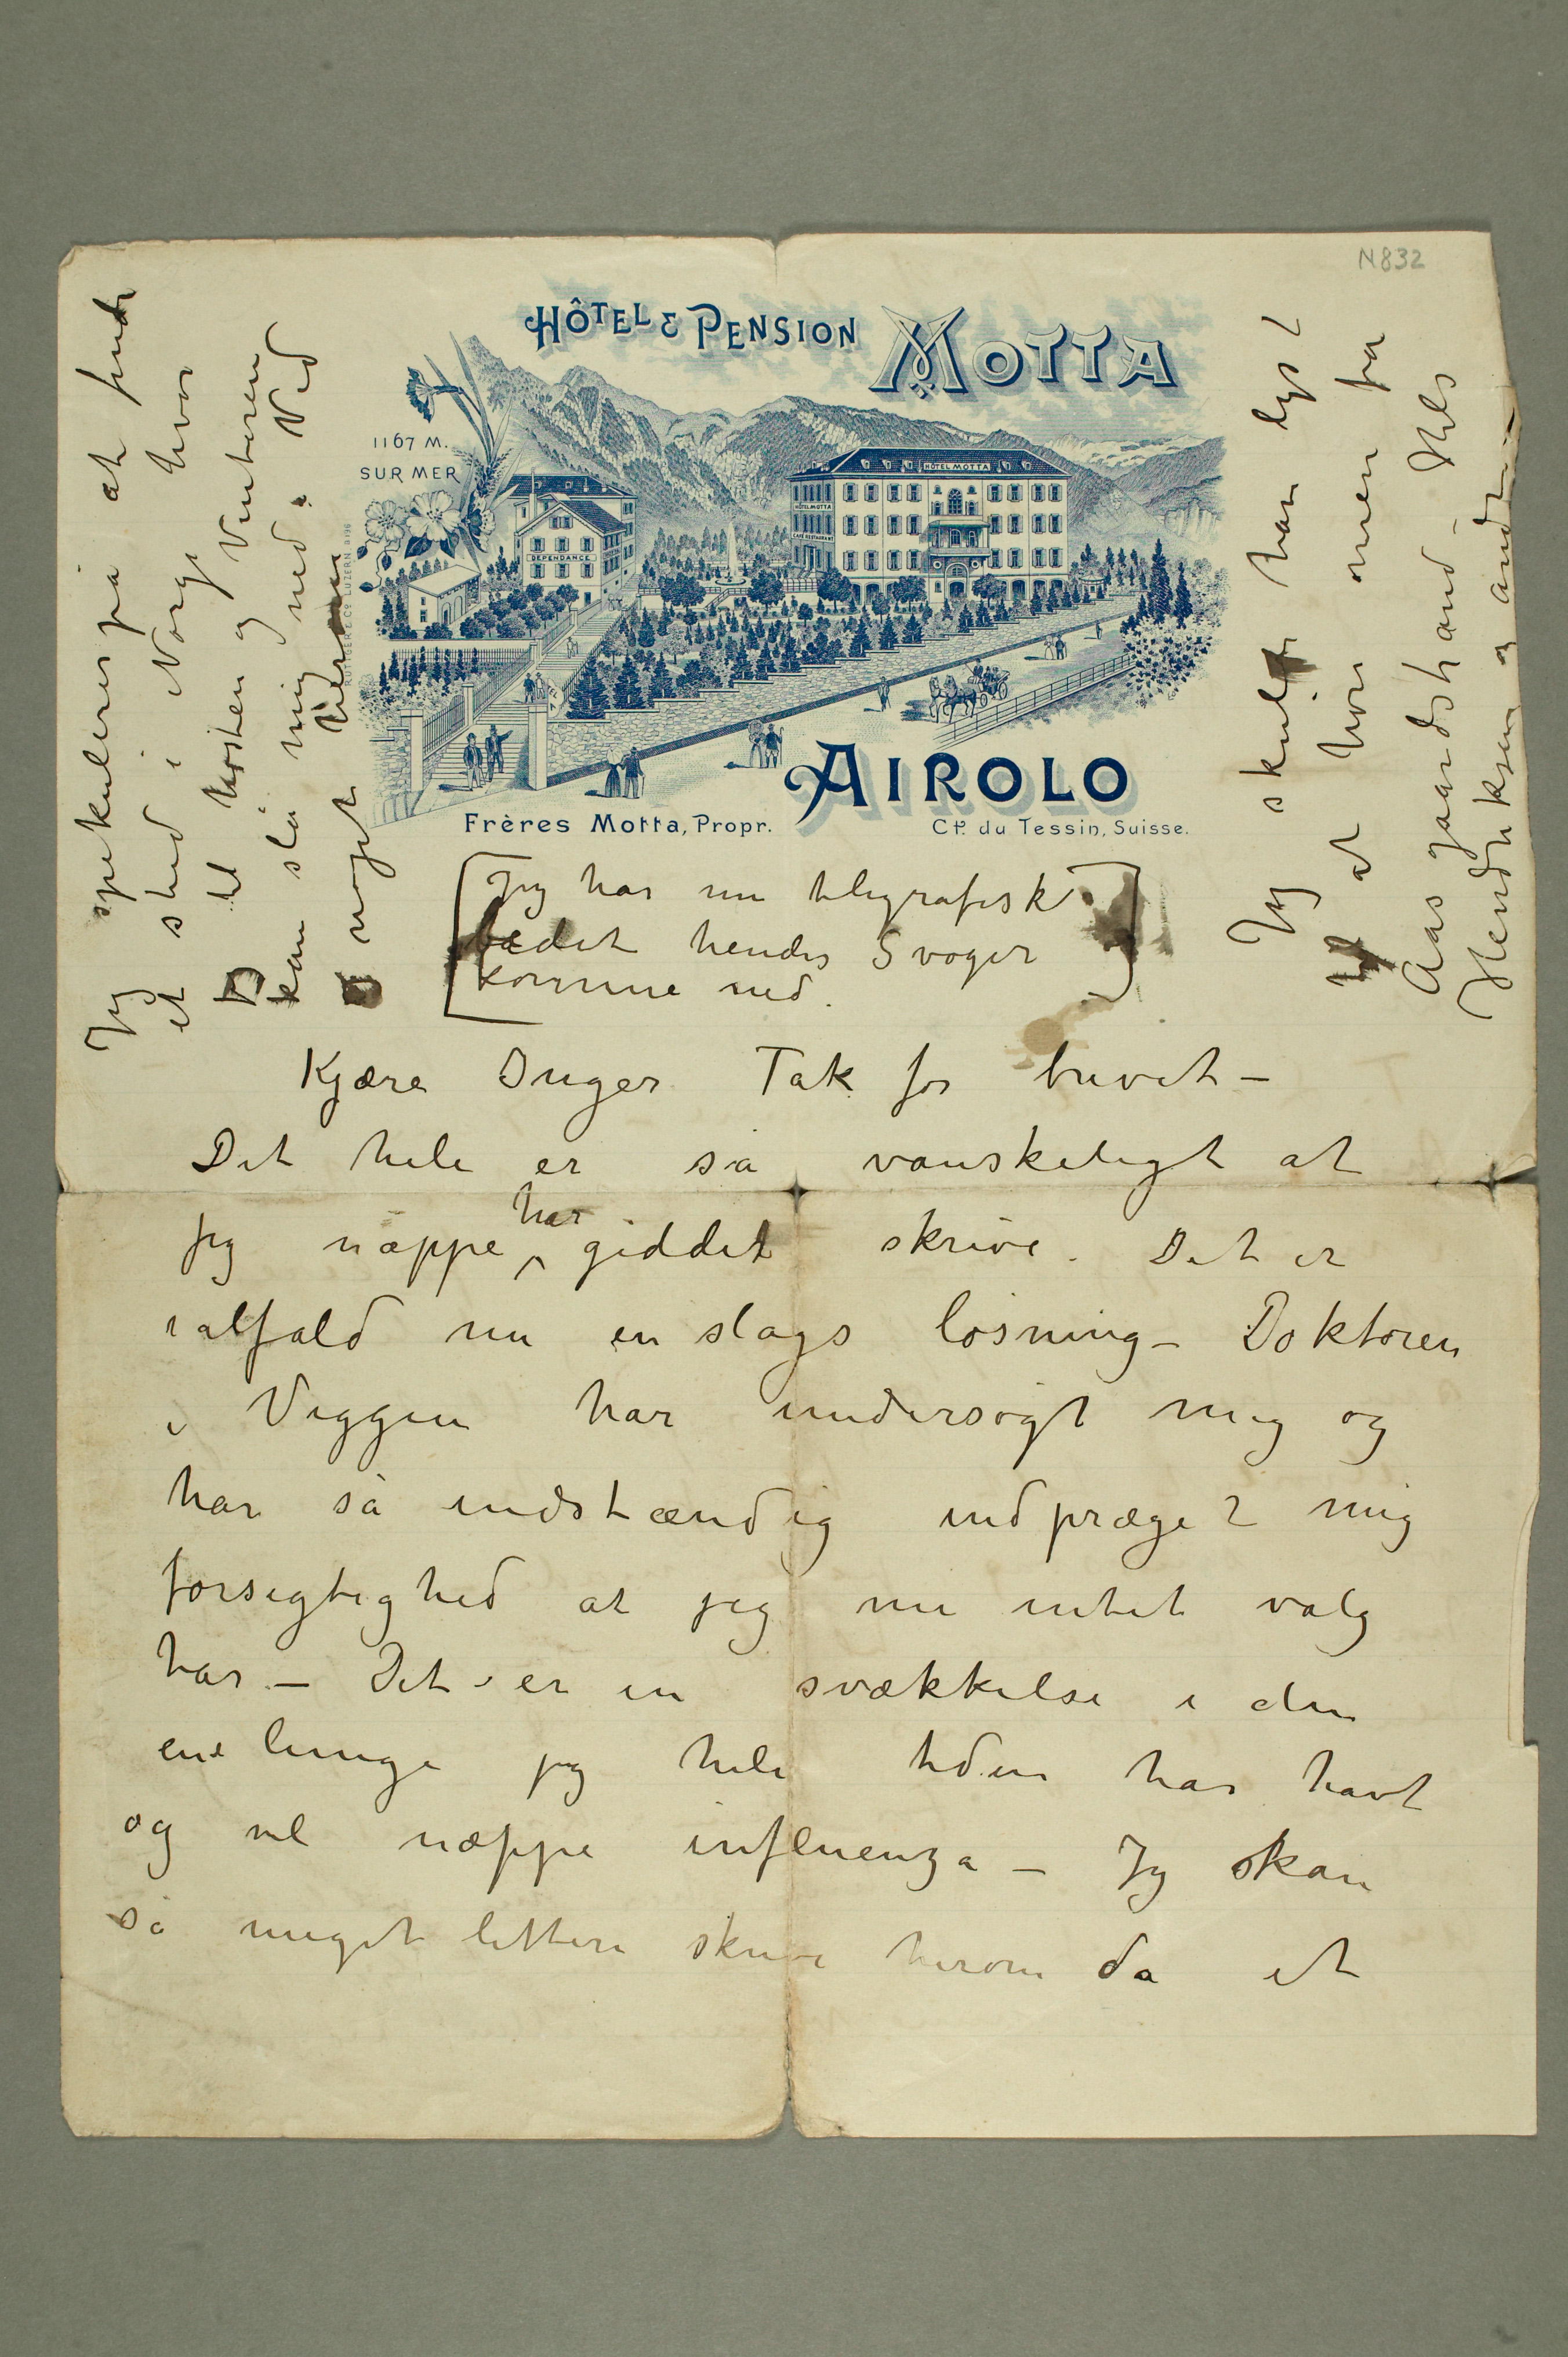 N832
HÔTEL & PENSION MOTTA
1167 M.
SUR MER
HÔTEL MOTTA
HÔTEL MOTTA
CAFÉ RESTAURANT
DEPENDANCE
AIROLO
Frères Motta, Propr.
Ct. du Tessin, Suisse.
[Jeg har nu telegrafisk
bedet hendes Svoger
komme ned.]
Kjære Inger Tak for brevet –
Det hele er så vanskeligt at
jeg næppe har giddet skrive. Det er
ialfald nu en slags løsning – Doktoren
i Viggen har undersøgt mig og
har så indstændig indpræget mig
forsigtighed at jeg nu intet valg
har – Det er en svækkelse i den
ene lunge jeg hele tiden har havt
og vel næppe influenza – Jeg kan
så meget lettere skrive herom da et
Jeg spekulerer på at finde
et sted i Norge hvor
til høsten og Vinteren
kan slå mig ned. Ved
noget
Jeg skulde ha lyst
at høre mer fra
Aasgaardstrand – Hils
Henriksen og andre –